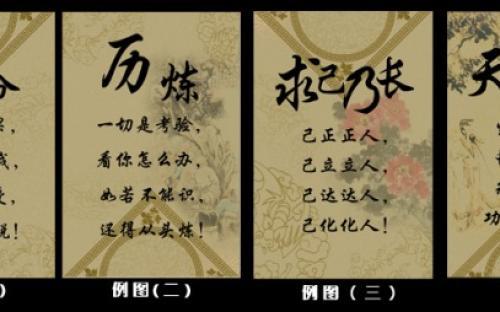 历炼
一切是考验，
看你怎么办，
如若不能识，
还得从头炼！
例图(二)
求己乃长
己正正人，
己立立人，
己达达人，
己化化人！
例图（三）
天
功